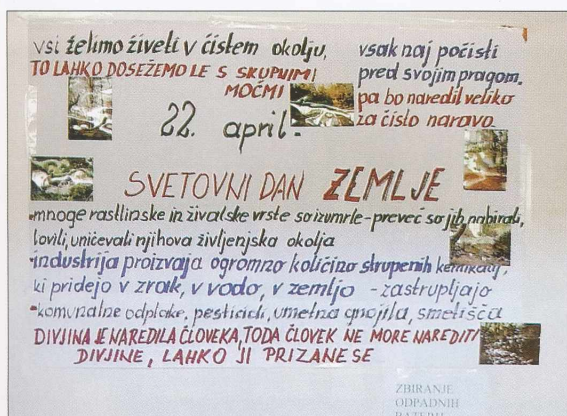 vsi želimo živeti v čistem okolju,
TO LAHKO DOSEŽEMO LE S SKUPNIMI
MOČMI
vsak naj počisti
pred svojim pragom,
pa bo naredil veliko
za čisto naravo.
22. april -
SVETOVNI DAN ZEMLJE
-mnoge rastlinske in živalske vrste so izumrle - preveč so jih nabirali,
lovili, uničevali njihova življenjska okolja
-industrija proizvaja ogromno količino strupenih kemikalij,
ki pridejo v zrak, v vodo, v zemljo - zastrupljajo
-komunalne odplake, pesticidi, umetna gnojila, smetišča
DIVJINA JE NAREDILA ČLOVEKA, TODA ČLOVEK NE MORE NAREDITI
DIVJINE, LAHKO JI PRIZANESE
ZBIRANJE
ODPADNIH
BATERIJ